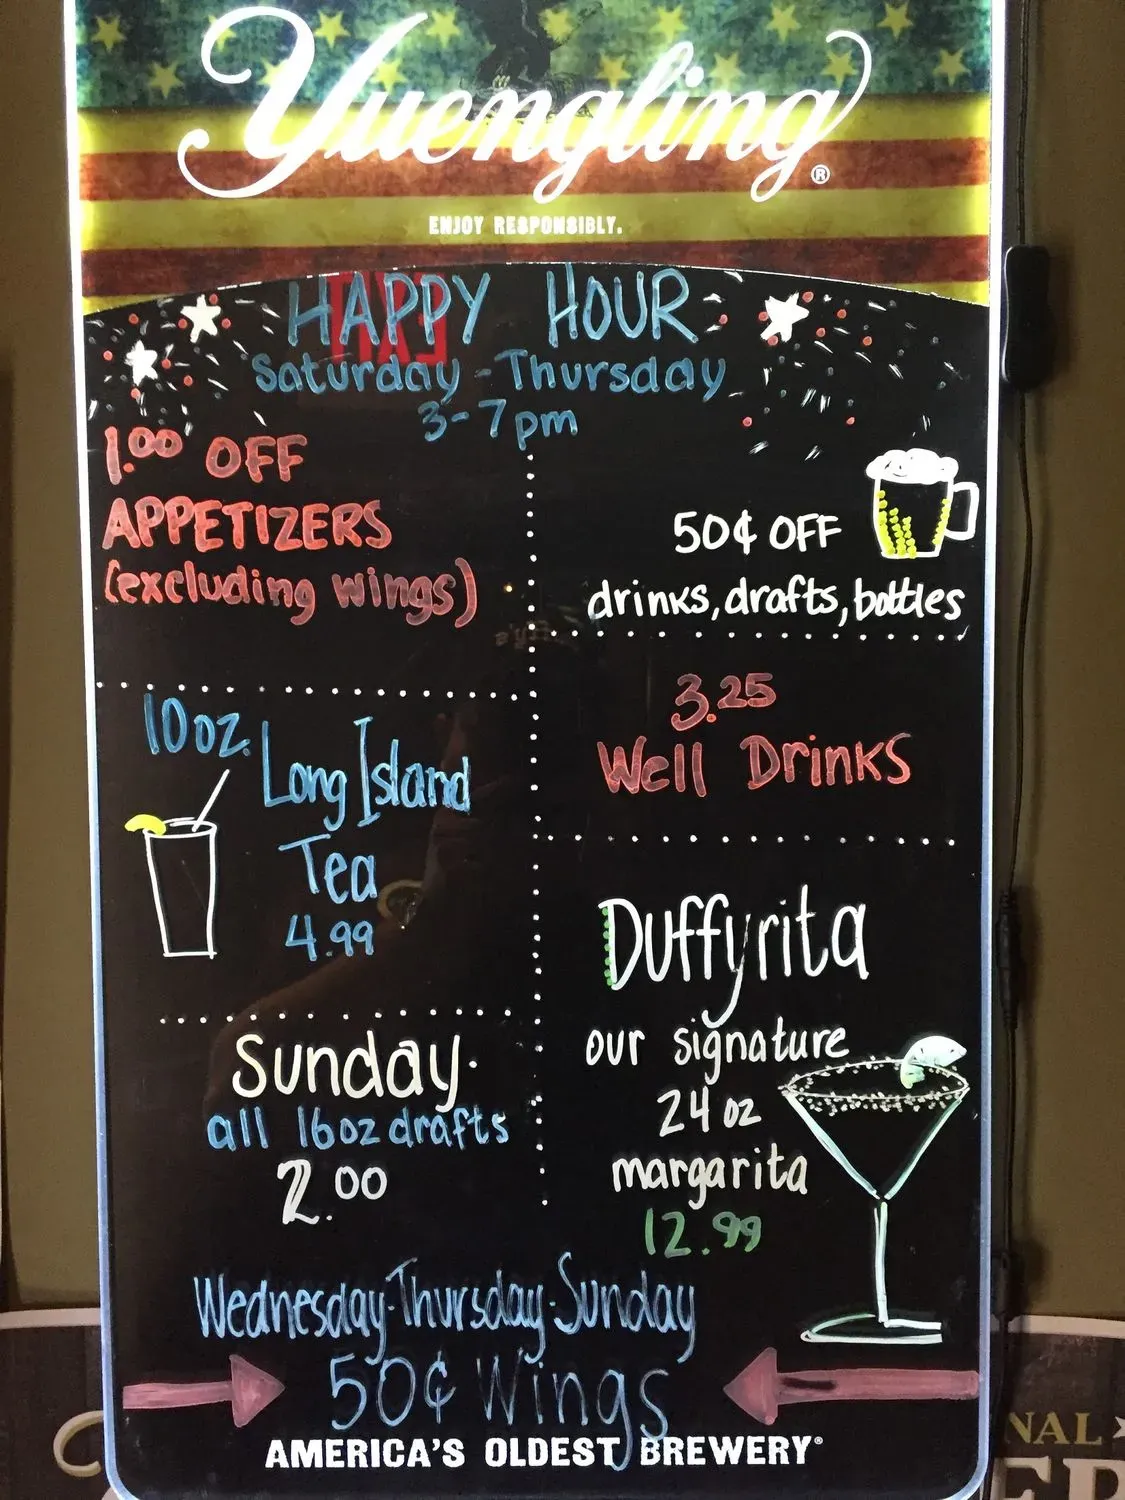 Yuengling®
ENJOY RESPONSIBLY.
HAPPY HOUR
Saturday - Thursday
3-7pm
1.00 OFF
APPETIZERS
(excluding wings)
50¢ OFF
drinks, drafts, bottles
10oz.
Long Island
Tea
4.99
3.25
Well Drinks
Sunday.
all 16oz drafts
2.00
Duffyrita
our signature
24 oz
margarita
12.99
Wednesday-Thursday-Sunday
50¢ Wings
AMERICA'S OLDEST BREWERY®
NAL